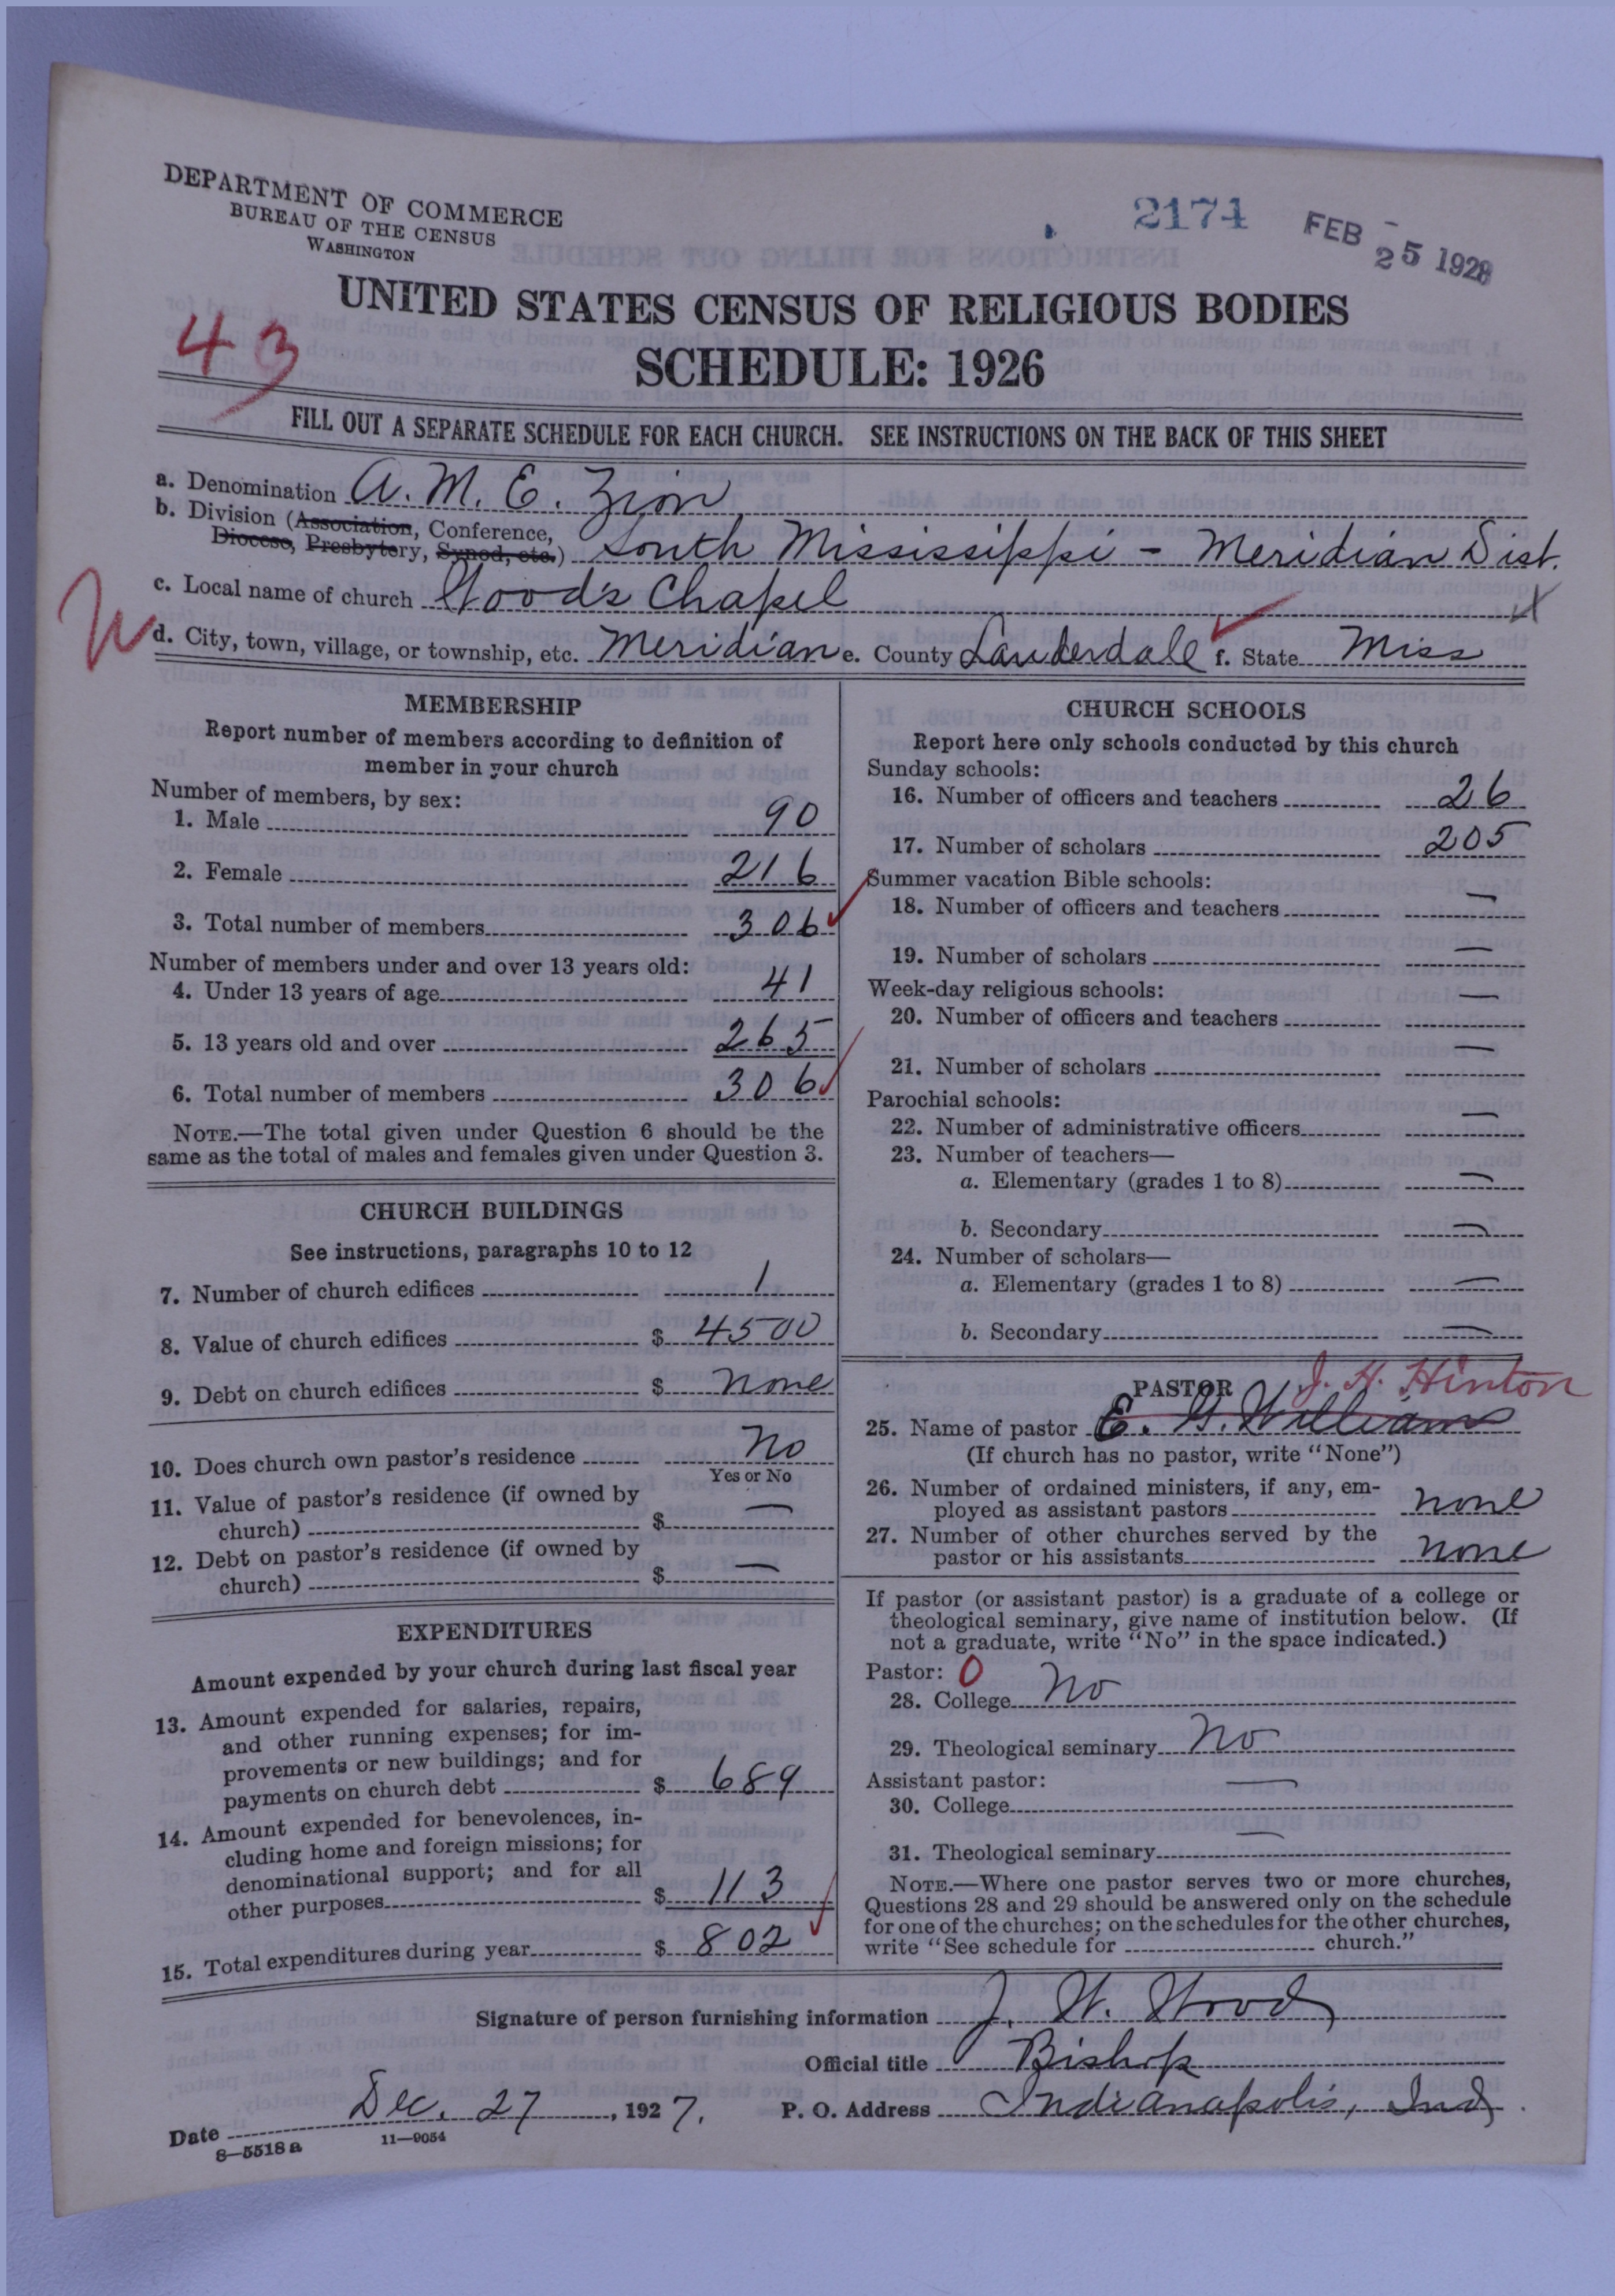 DEPARTMENT OF COMMERCE
BUREAU OF THE CENSUS
WASHINGTON
2174
FEB 25 1928
UNITED STATES CENSUS OF RELIGIOUS BODIES
43
SCHEDULE: 1926
FILL OUT A SEPARATE SCHEDULE FOR EACH CHURCH. SEE INSTRUCTIONS ON THE BACK OF THIS SHEET
a. Denomination A. M. E. Zion
b. Division (Association, Conference,
Diocese, Presbytery, Synod, etc.) South Mississippi - Meridian Dist.
c. Local name of church Wood's Chapel
d. City, town, village, or township, etc. Meridian e. County Lauderdale f. State Miss
MEMBERSHIP
Report number of members according to definition of
member in your church
Number of members, by sex:
1. Male 90
2. Female 216
3. Total number of members 306
Number of members under and over 13 years old:
4. Under 13 years of age 41
5. 13 years old and over 265
6. Total number of members 306
NOTE.—The total given under Question 6 should be the
same as the total of males and females given under Question 3.
CHURCH BUILDINGS
See instructions, paragraphs 10 to 12
7. Number of church edifices 1
8. Value of church edifices $ 4500
9. Debt on church edifices $ none
10. Does church own pastor's residence No
Yes or No
11. Value of pastor's residence (if owned by
church) $ —
12. Debt on pastor's residence (if owned by
church) $ —
EXPENDITURES
Amount expended by your church during last fiscal year
13. Amount expended for salaries, repairs,
and other running expenses; for im-
provements or new buildings; and for
payments on church debt $ 689
14. Amount expended for benevolences, in-
cluding home and foreign missions; for
denominational support; and for all
other purposes $ 113
15. Total expenditures during year $ 802
CHURCH SCHOOLS
Report here only schools conducted by this church
Sunday schools:
16. Number of officers and teachers 26
17. Number of scholars 205
Summer vacation Bible schools:
18. Number of officers and teachers —
19. Number of scholars —
Week-day religious schools:
20. Number of officers and teachers —
21. Number of scholars —
Parochial schools:
22. Number of administrative officers —
23. Number of teachers—
a. Elementary (grades 1 to 8) —
b. Secondary —
24. Number of scholars—
a. Elementary (grades 1 to 8) —
b. Secondary —
PASTOR J. H. Hinton
25. Name of pastor E. G. Williams
(If church has no pastor, write "None")
26. Number of ordained ministers, if any, em-
ployed as assistant pastors none
27. Number of other churches served by the
pastor or his assistants none
If pastor (or assistant pastor) is a graduate of a college or
theological seminary, give name of institution below. (If
not a graduate, write "No" in the space indicated.)
Pastor: 0
28. College No
29. Theological seminary No
Assistant pastor:
30. College —
31. Theological seminary —
NOTE.—Where one pastor serves two or more churches,
Questions 28 and 29 should be answered only on the schedule
for one of the churches; on the schedules for the other churches,
write "See schedule for church."
Signature of person furnishing information J. W. Wood
Official title Bishop
Date Dec. 27, 1927. P. O. Address Indianapolis, Ind.
8—5518 a 11—9054